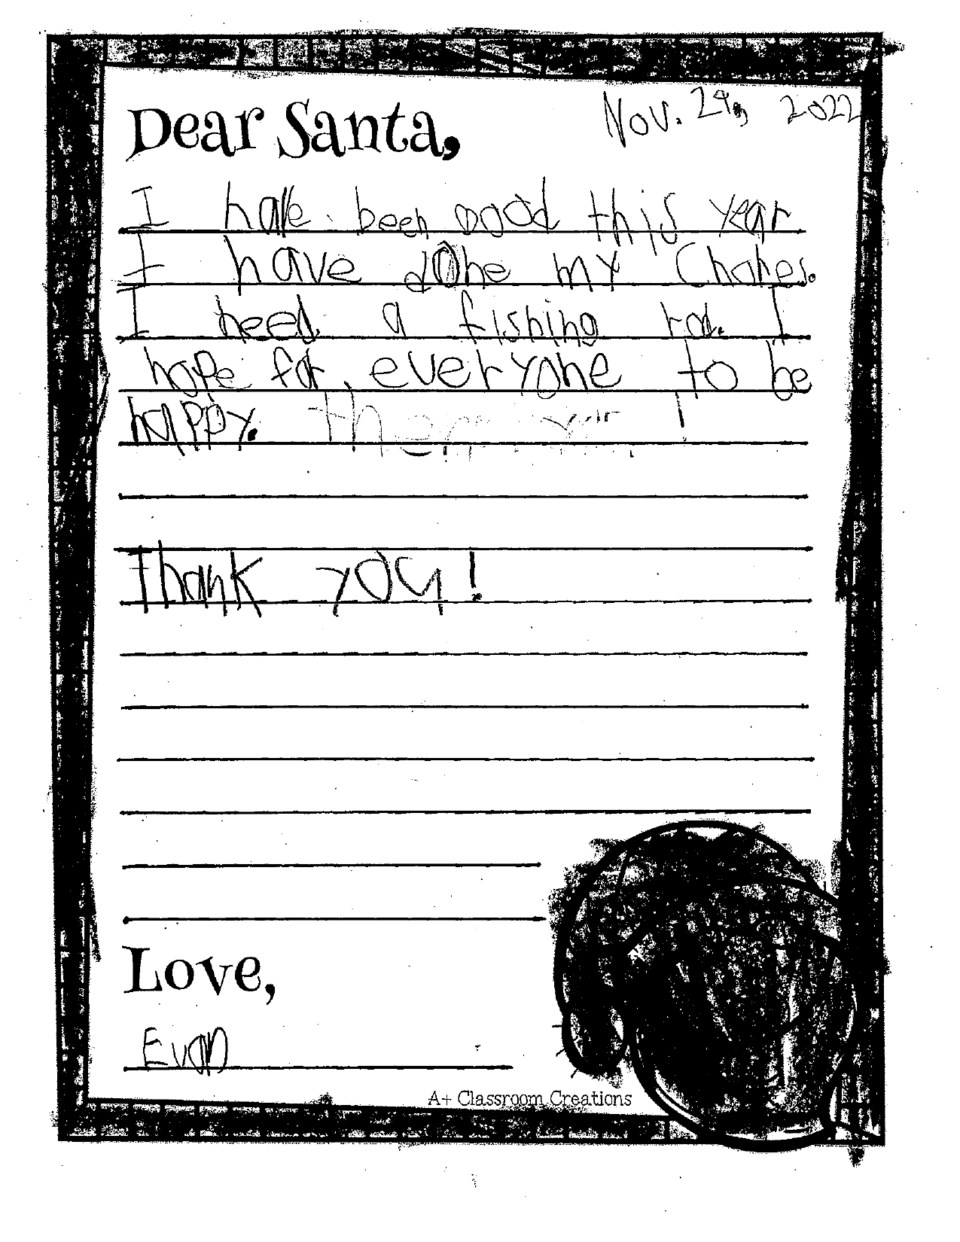 Nov. 29, 2022
Dear Santa,
I have been good this year
I have done my Chores.
I need a fishing rod. I
hope for everyone to be
happy. !
Thank you!
Love,
Evan
A+ Classroom Creations